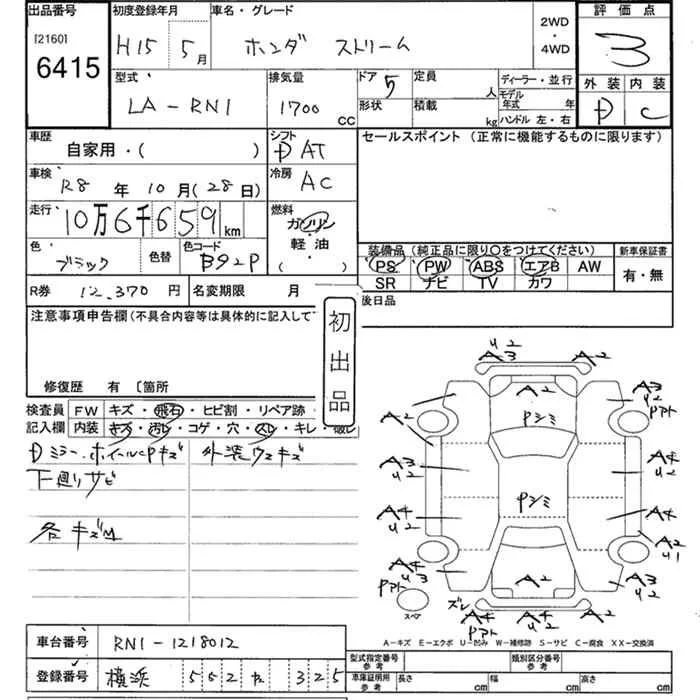 出品番号 初度登録年月 車名・グレード 2WD・4WD 評価点
[2160]
6415 H15 5月 ホンダ ストリーム 3
型式 排気量 ドア 定員 人 ディーラー・並行 外装 内装
LA-RN1 1700 CC 5 形状 積載 kg モデル年式 年 D C
ハンドル 左・右
車歴 シフト セールスポイント (正常に機能するものに限ります)
自家用・( ) DAT
車検 冷房
R8年10月(28日) AC
走行 燃料
10万6千659km ガソリン・軽油・( )
色 色替 色コード 装備品(純正品に限り○をつけてください) 新車保証書
ブラック B92P PS PW ABS エアB AW 有・無
SR ナビ TV カワ
R券 12,370円 名変期限 月 後日品
注意事項申告欄(不具合内容等は具体的に記入して下
初出品
修復歴 有 〔箇所
検査員 FW キズ・飛石・ヒビ割・リペア跡
記入欄 内装 キズ・汚レ・コゲ・穴・スレ・キレ・破レ
Dミラー.ホイールCPキズ 外装ウスキズ
下廻りサビ
各キズM
U2 A3 A2
A2 A3 U2 Pアト
A2 Pシミ
A3 U2 A4 U2
Pシミ
A4 U2 A4
A2 U1
A4 U3 Pアト A2 A3 U2
ズレ A4 Pアト A4 U2 A2
スペア
A-キズ E-エクボ U-凹み W-補修跡 S-サビ C-腐食 XX-交換済
車台番号 RN1-1218012
型式指定番号 参考 類別区分番号 参考
登録番号 横浜 552 ね 325
車庫証明用 参考 長さ cm 幅 cm 高さ cm